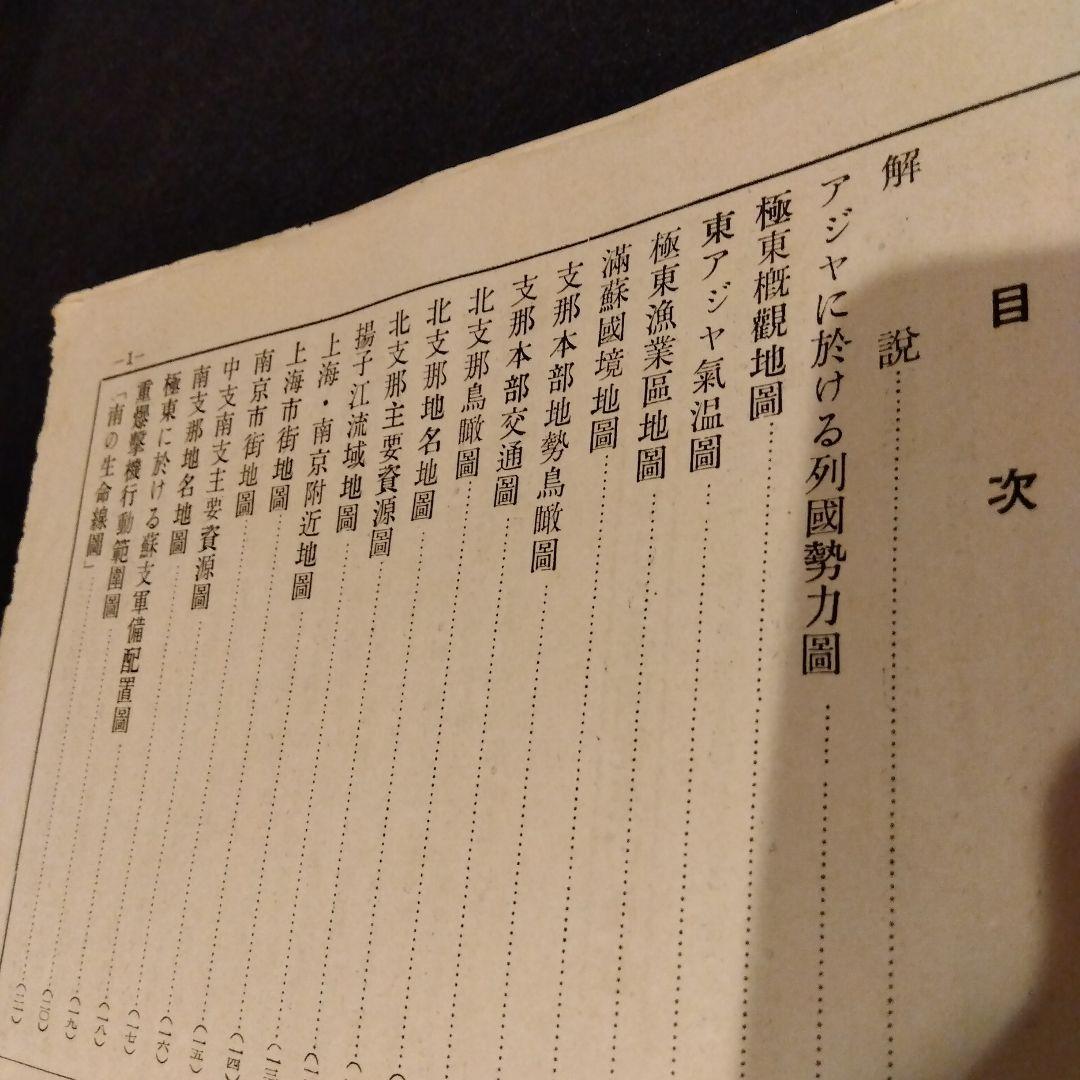 目次
解説……
アジヤに於ける列國勢力圖……
極東槪觀地圖……
東アジヤ氣温圖……
極東漁業區地圖……
滿蘇國境地圖……
支那本部地勢鳥瞰圖……
支那本部交通圖……
北支那鳥瞰圖……
北支那地名地圖……
北支那主要資源圖……
揚子江流域地圖……(一三
上海・南京附近地圖……(一四)
上海市街地圖……(一五)
南京市街地圖……(一六)
中支南支主要資源圖……(一七)
南支那地名地圖……(一八)
極東に於ける蘇支軍備配置圖……(一九)
重爆擊機行動範圍圖……(二〇)
「南の生命線圖」……(二一)
—1—